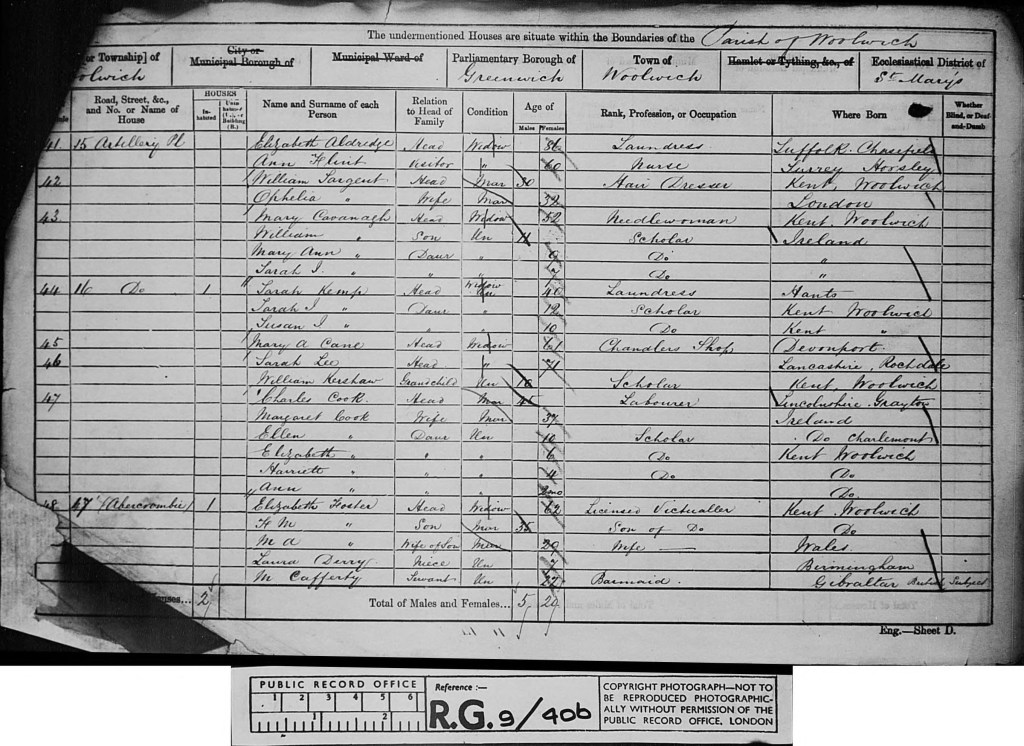 The undermentioned Houses are situate within the Boundaries of the Parish of Woolwich
or Township] of
olwich
City or Municipal Borough of
Municipal Ward of
Parliamentary Borough of Greenwich
Town of Woolwich
Hamlet or Tything, &c., of
Ecclesiastical District of St Mary's
Road, Street, &c., and No. or Name of House
HOUSES
In-habited
Name and Surname of each Person
Relation to Head of Family
Condition
Age of
Males Females
Rank, Profession, or Occupation
Where Born
Whether Blind, or Deaf-and-Dumb
41 15 Artillery Pl Elizabeth Aldredge Head Widow 86 Laundress Suffolk
Ann Flint Visitor " 60 Nurse Surrey Horsley
42 William Sargent Head Mar 30 Hair Dresser Kent, Woolwich
Ophelia " Wife Mar 32 London
43 Mary Cavanagh Head Widow 52 Needlewoman Kent Woolwich
William " Son Un 11 Scholar Ireland
Mary Ann " Daur " Do "
Sarah J. " " " Do "
44 16 Do 1 Sarah Kemp Head Widow 40 Laundress Hants
Sarah J " Daur 12 Scholar Kent Woolwich
Susan J " " " 10 Do Kent "
45 Mary A Cane Head Widow 61 Chandlers Shop Devonport
46 Sarah Lee Head " 71 Lancashire, Rochdale
William Kershaw Grandchild Un 10 Scholar Kent, Woolwich
47 Charles Cook Head Mar 45 Labourer Lincolnshire Grayton
Margaret Cook Wife Mar 37 Ireland
Ellen " Daur Un 10 Scholar Do Charlemont
Elizabeth " " " 6 Do Kent Woolwich
Harriett " " " 4 Do Do
Ann " " " 2 mo Do
48 47 (Abercrombie) 1 Elizabeth Foster Head Widow 62 Licensed Victualler Kent Woolwich
H M " Son Mar 35 Son of Do Do
M A " Wife of Son Mar 29 Wife — Wales
Laura Derry Niece Un 7 Birmingham
M Cafferty Servant Un 27 Barmaid. Gibraltar British Subject
ouses... 2 Total of Males and Females... 5 20
Eng.—Sheet D.
PUBLIC RECORD OFFICE
1 2 3 4 5 6
1 2
Reference :—
R.G. 9/406
COPYRIGHT PHOTOGRAPH—NOT TO
BE REPRODUCED PHOTOGRAPHIC-
ALLY WITHOUT PERMISSION OF THE
PUBLIC RECORD OFFICE, LONDON